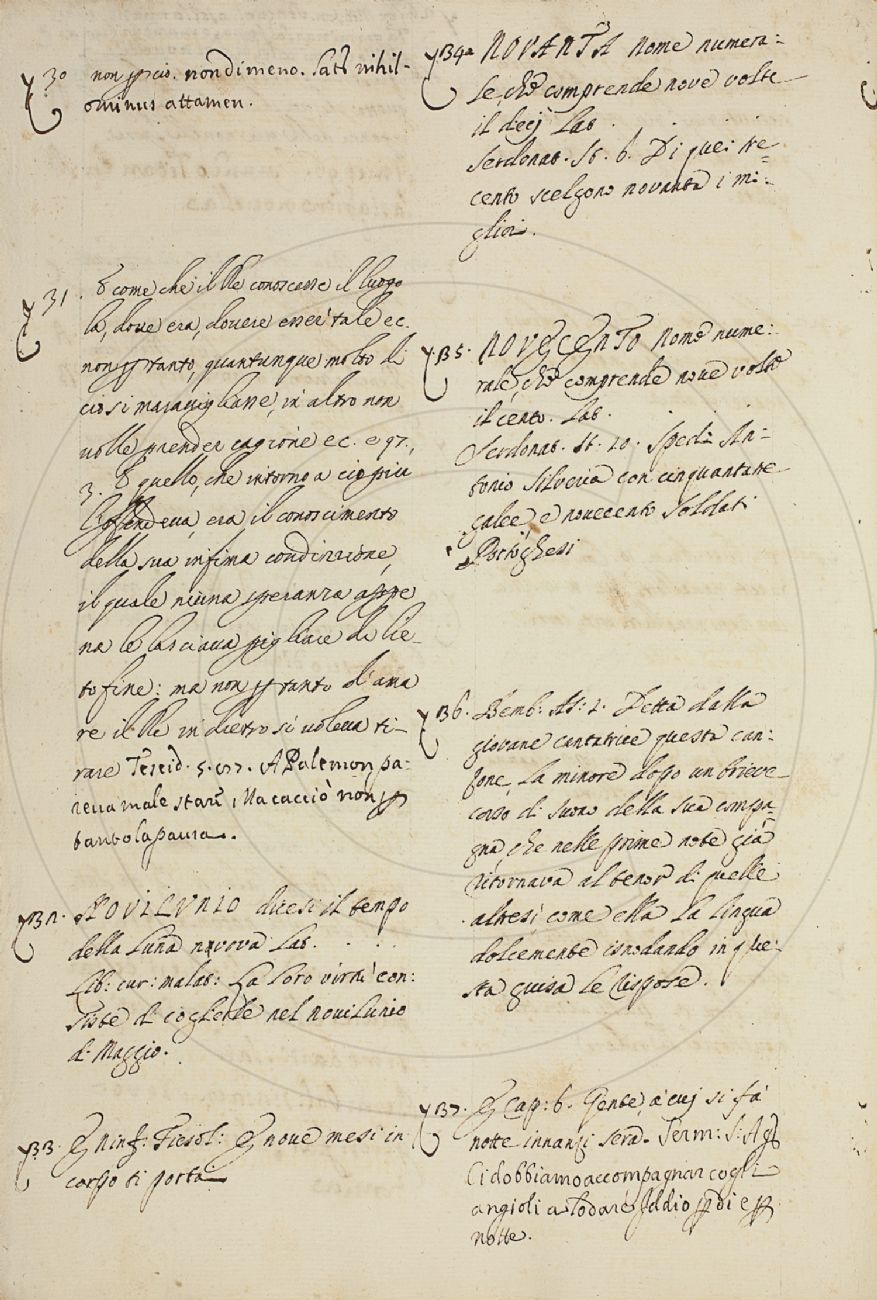 30 non p ciò. nondimeno. Lat. nihil-
ominus attamen.
31. E come che il Re conoscesse il luogo
la, dove era, dovere esser tale ec.
non p tanto, quantunque molto di
ciò si maravigliasse, in altro non
volle prender cagione ec. e 97.
3. E quello, che intorno a ciò più
l'offendeva, era il conoscimento
della sua infima condizione,
il quale niuna speranza appe
na le lasciava pigliare di lie-
to fine: ma non p tanto d'ama
re il Re indietro si voleva ti-
rare Teseid. 5. A Palemon pa-
reva male stare, Ma cacciò non p
tanto la paura.
NOVILUNIO dicesi il tempo
della Luna nuova Lat.
Lib: cur: malat: La loro virtù con:
siste di coglierle nel novilunio
di Maggio.
33. E Ninf: Fiesol: E nove mesi in
corpo ti portai
B4a NOVANTA Nome numera:
le, che comprende nove volte
il dieci Lat.
Serdonat. St. 6. Di quei tre=
cento scelgono novanta i mi:
gliori.
B5. NOVECENTO Nome nume:
rale, che comprende nove volte
il cento. Lat.
Serdonat. St. 10. Spedì An-
tonio Silveria con cinquantatre
galee, e novecento Soldati
Portoghesi
B6. Bemb: As: 1. Detta dalla
giovane cantatrice questa can:
zone, la minore dopo un brieve
corso di suono della sua compa:
gna, che nelle prime note già
ritornava al tenor di quelle
altresì come ella la lingua
dolcemente isnodando in que:
sta guisa le rispose.
B7. E Cap: 6. Gente, a cuj si fa
notte innanzi sera. Serm: S: Ag:
Ci dobbiamo accompagnar cogli
angioli a lodare Iddio p dì e p
notte.